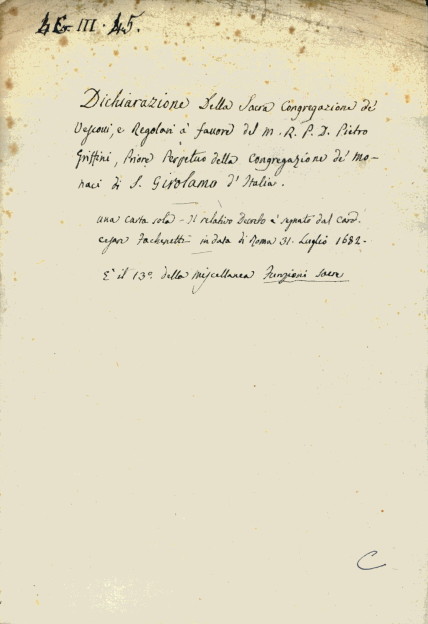 III. 45.
Dichiarazione Della Sacra Congregazione de'
Vescovi, e Regolari à favore del M. R. P. D. Pietro
Griffini, Priore Perpetuo della Congregazione de' Mo-
naci di S. Girolamo d'Italia.
una carta sola - Il relativo Decreto è segnato dal Card.
Cesare Fachenetti - in data di Roma 31. Luglio 1682.
È il 13º. della Miscellanea Funzioni Sacre
C